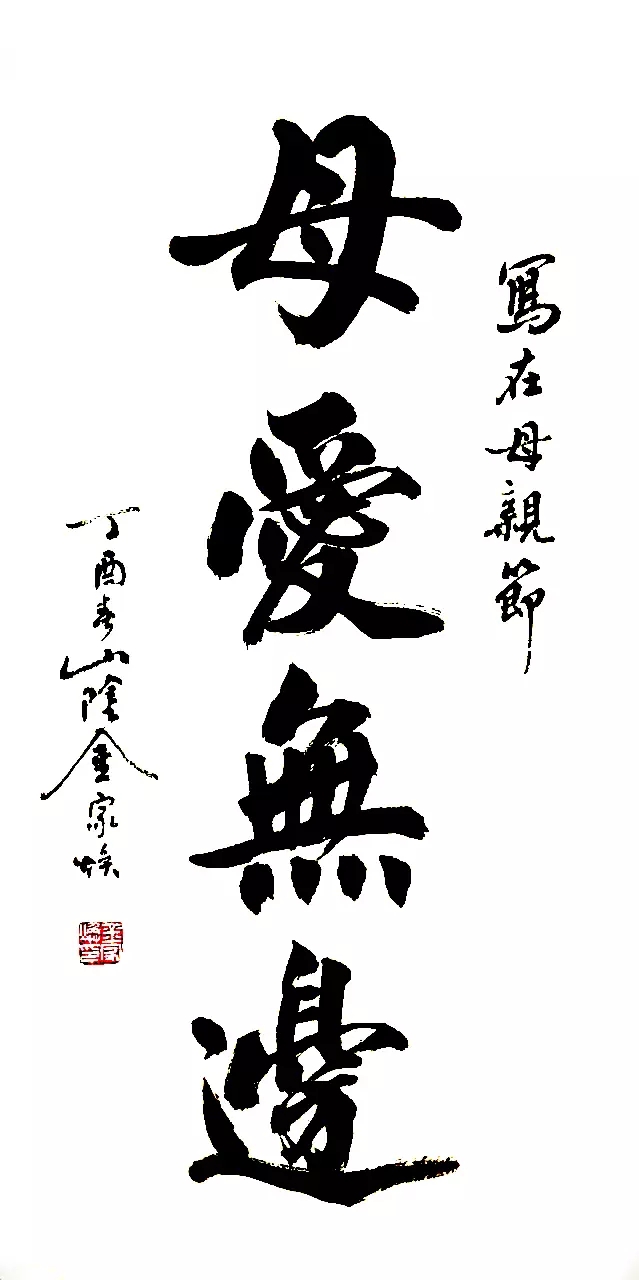 寫在母親節
母愛無邊
丁酉春山陰金家